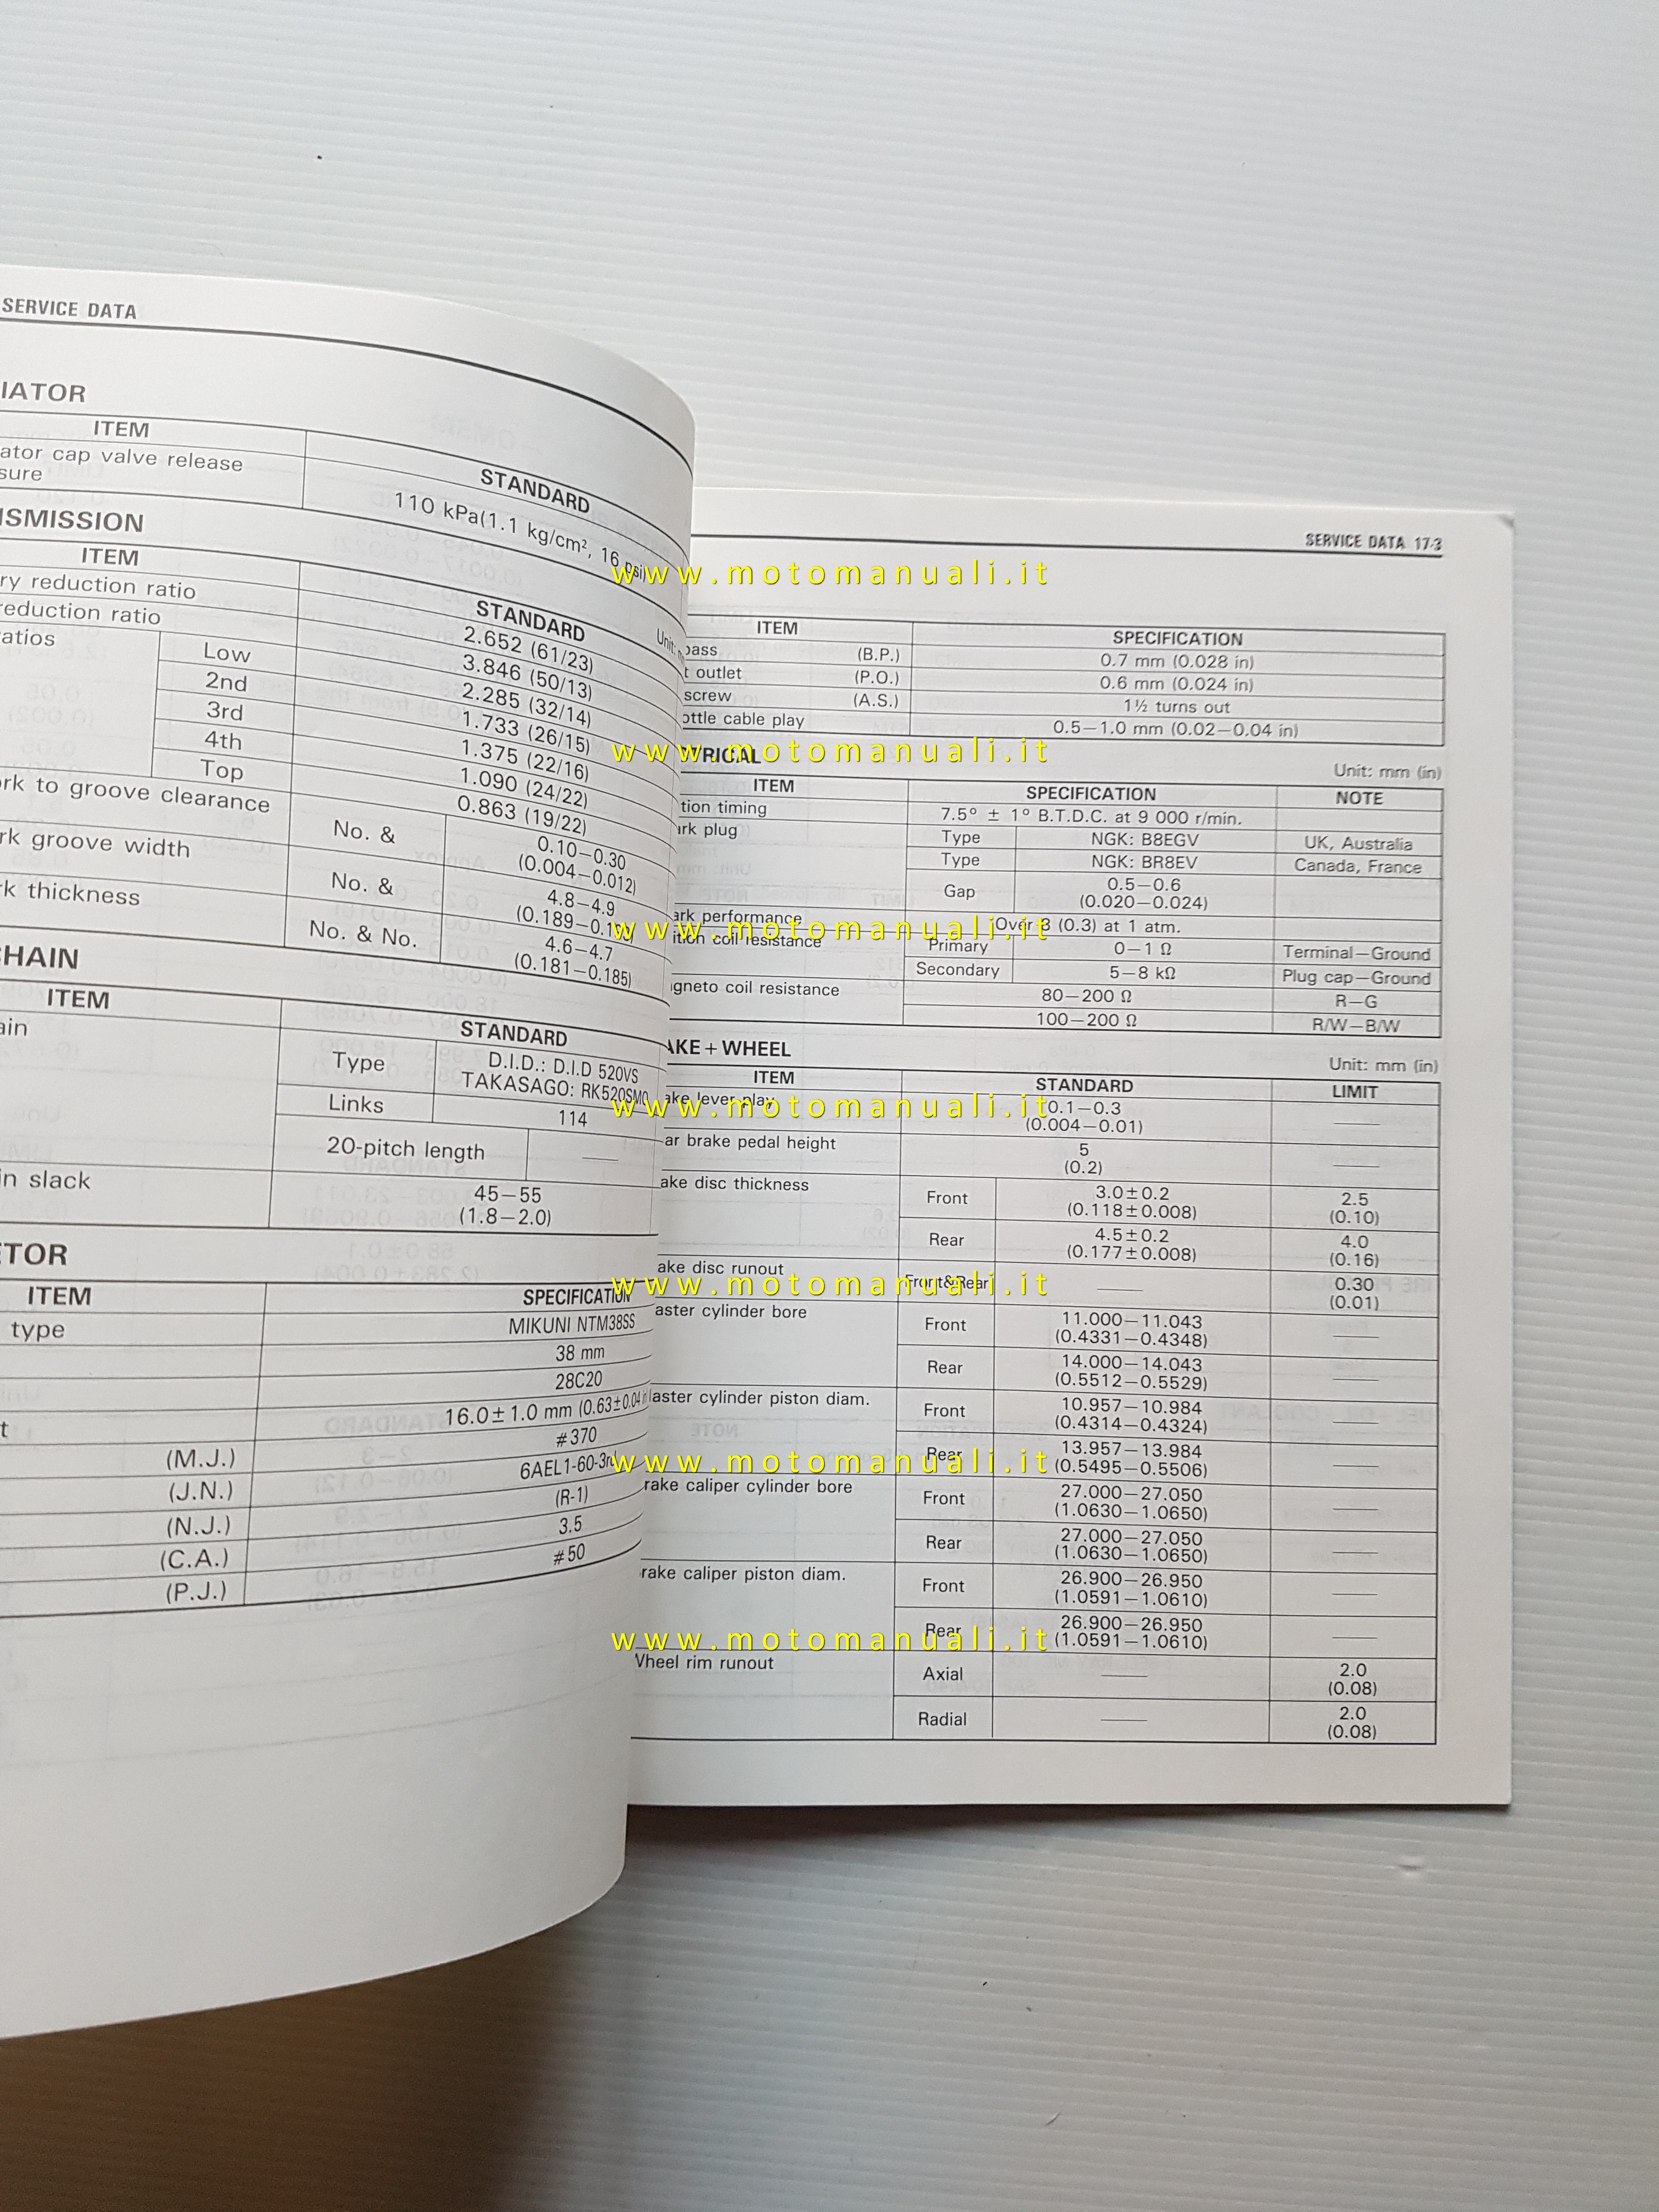 SERVICE DATA
IATOR
ITEM STANDARD
ator cap valve release
sure 110 kPa(1.1 kg/cm², 16 psi)
NSMISSION
ITEM STANDARD
ry reduction ratio 2.652 (61/23)
reduction ratio 3.846 (50/13)
atios Low 2.285 (32/14)
2nd 1.733 (26/15)
3rd 1.375 (22/16)
4th 1.090 (24/22)
Top 0.863 (19/22)
rk to groove clearance No. & 0.10–0.30
(0.004–0.012)
rk groove width No. & 4.8–4.9
rk thickness No. & No. 4.6–4.7
(0.181–0.185)
CHAIN
ITEM STANDARD
ain Type D.I.D.: D.I.D 520VS
TAKASAGO: RK520SMO
Links 114
20-pitch length ——
in slack 45–55
(1.8–2.0)
ETOR
ITEM SPECIFICATION
type MIKUNI NTM38SS
38 mm
28C20
t 16.0±1.0 mm (0.63±0.04 in)
(M.J.) #370
(J.N.) 6AEL1-60-3rd
(N.J.) (R-1)
(C.A.) 3.5
(P.J.) #50
SERVICE DATA 17-3
ITEM SPECIFICATION
pass (B.P.) 0.7 mm (0.028 in)
t outlet (P.O.) 0.6 mm (0.024 in)
screw (A.S.) 1½ turns out
ottle cable play 0.5–1.0 mm (0.02–0.04 in)
TRICAL Unit: mm (in)
ITEM SPECIFICATION NOTE
tion timing 7.5° ± 1° B.T.D.C. at 9 000 r/min.
ark plug Type NGK: B8EGV UK, Australia
Type NGK: BR8EV Canada, France
Gap 0.5–0.6
(0.020–0.024)
ark performance Over 8 (0.3) at 1 atm.
ition coil resistance Primary 0–1 Ω Terminal–Ground
Secondary 5–8 kΩ Plug cap–Ground
gneto coil resistance 80–200 Ω R–G
100–200 Ω R/W–B/W
AKE+WHEEL Unit: mm (in)
ITEM STANDARD LIMIT
ake lever play 0.1–0.3
(0.004–0.01) ——
ar brake pedal height 5
(0.2) ——
ake disc thickness Front 3.0±0.2 2.5
(0.118±0.008) (0.10)
Rear 4.5±0.2 4.0
(0.177±0.008) (0.16)
ake disc runout Front&Rear —— 0.30
(0.01)
aster cylinder bore Front 11.000–11.043
(0.4331–0.4348) ——
Rear 14.000–14.043
(0.5512–0.5529) ——
laster cylinder piston diam. Front 10.957–10.984
(0.4314–0.4324) ——
Rear 13.957–13.984
(0.5495–0.5506) ——
rake caliper cylinder bore Front 27.000–27.050
(1.0630–1.0650) ——
Rear 27.000–27.050
(1.0630–1.0650) ——
rake caliper piston diam. Front 26.900–26.950
(1.0591–1.0610) ——
Rear 26.900–26.950
(1.0591–1.0610) ——
Wheel rim runout Axial —— 2.0
(0.08)
Radial —— 2.0
(0.08)
www.motomanuali.it
www.motomanuali.it
www.motomanuali.it
www.motomanuali.it
www.motomanuali.it
www.motomanuali.it
www.motomanuali.it